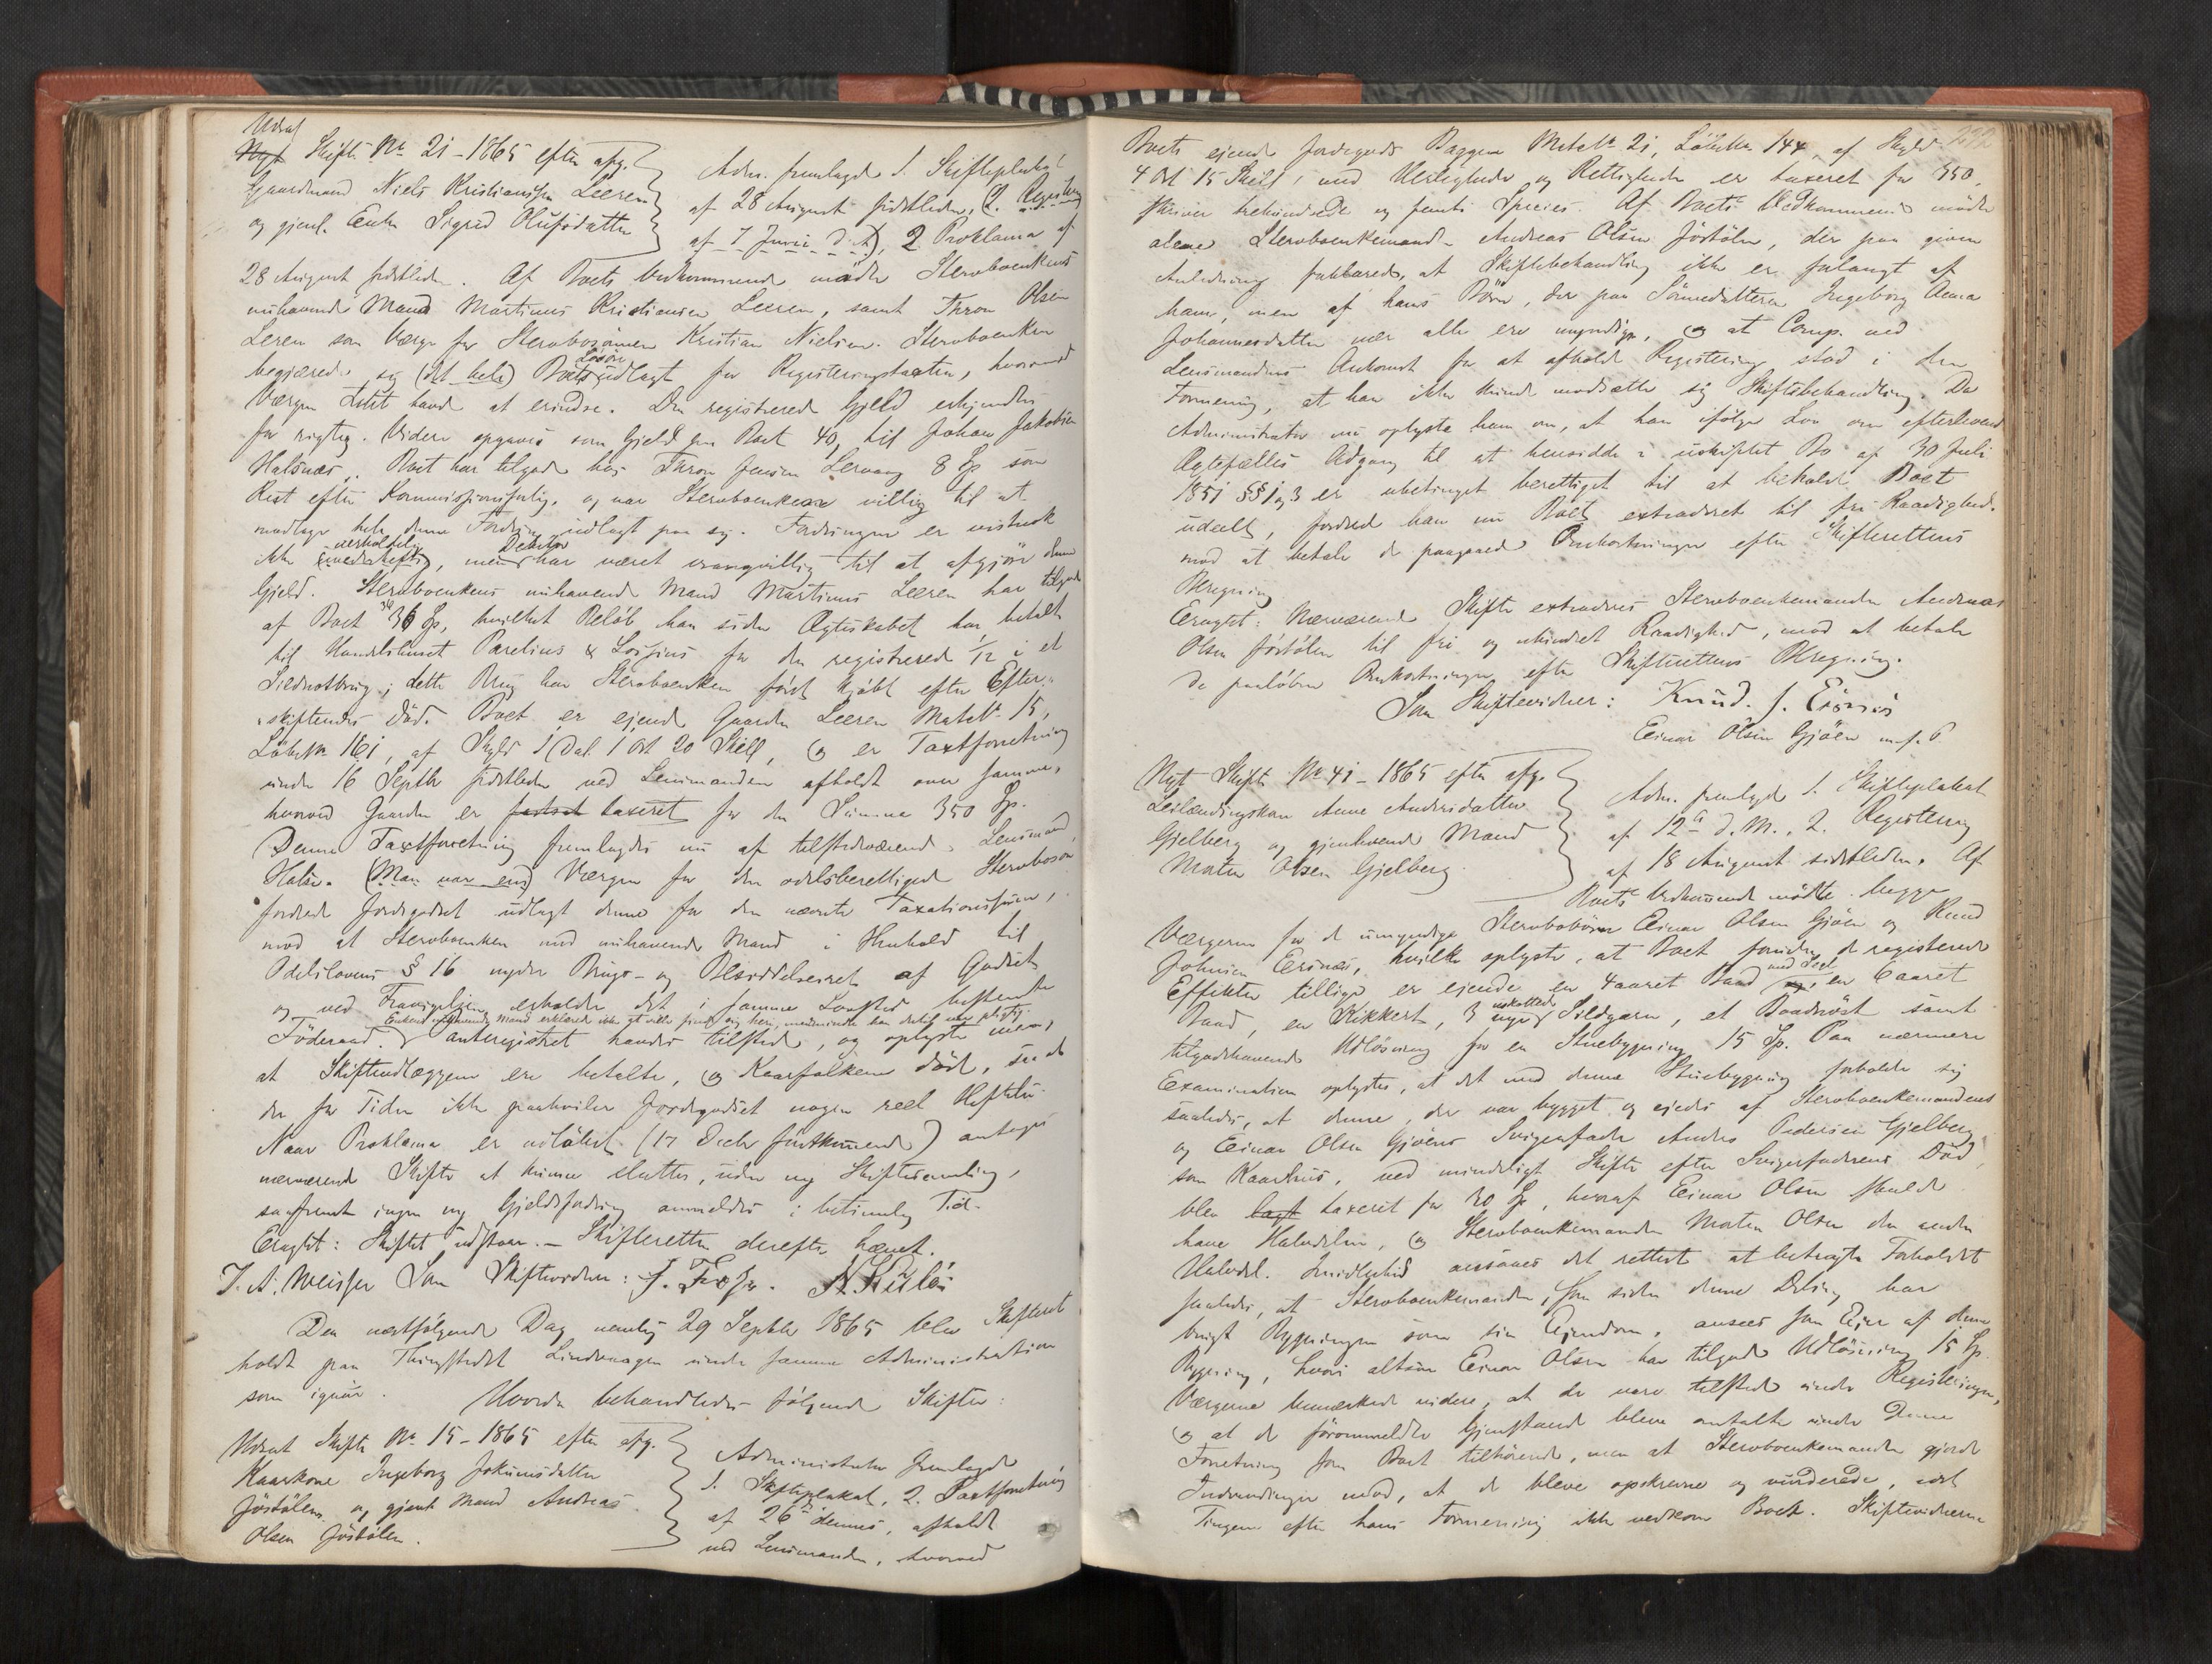 Udsat
Nyt Skifte No 21 - 1865 efter afg.
Gaardmand Niels Kristiansen Leeren
og gjenl. Enke Sigrid Olufsdatter
Adm. fremlagde 1. Skifteplakat
af 28 August sidstleden, (2. Registering
af 7 Juni d. A), 2 Proklama af
28 August sidstleden. Af Boets Vedkommende mødte Stervboenkens
nuhavende Mand Martinus Kristiansen Leeren, samt Thron Olsen
Leren som Værge for Stervbosønnen Kristian Nielsen. Stervboenken
begjærede sig (det hele) Boets Løsøre udlagt for Registeringstaxten, hvorved
Værgen Intet havde at erindre. Den registrerede Gjeld erkjendtes
for rigtig. Videre opgaves som Gjeld paa Boet 40 til Johan Jakobsen
Halsnæs. Boet har tilgode hos Thron Jensen Lervaag 8 Sp som
Rest efter Kommissionsforlig, og var Stervboenken villig til at
modtage hele denne Fordring udlagt paa sig. Fordringen er vistnok
ikke uerholdelig, men Debitor har været uvangvillig til at afgjøre denne
Gjeld. Stervboenkens nuhavende Mand Martinus Leeren har tilgode
af Boet 36 Sp, hvilket Beløb han siden Ægteskabet har betalt
til Handelshuset Parelius & Lossius for den registrerede 1/12 i et
Sildnotbrug; dette Brug har Stervboenken først kjøbt efter Efter-
skiftendes Død. Boet er ejende Gaarden Leeren Matr No 15,
Løbe No 161, af Skyld 1 Dal. 1 Ort 20 Skill, og er Taxtforretning
under 16 Septbr sidstleden ved Lensmanden afholdt over samme,
hvorved Gaarden er fastsat taxeret for den Summa 350 Sp.
Denne Taxtforretning fremlagdes nu af tilstedeværende Lensmand
Halse. (Man var enig) Værgen for den odelsberettigede Stervbosøn
fordrede Jordegodset udlagt denne for den nævnte Taxationssum,
mod at Stervboenken med nuhavende Mand i Henhold til
Odelslovens § 16 nyder Brugs- og Besiddelsesret af Godset
og ved Fravigelsen erholder det i samme Lovsted bestemte
Enkens nuhavende Mand erklærede ikke at ville finde sig heri, medmindre han dertil var pligtig.
Føderaad. Panteregistret havdes tilstede, og oplystes
at Skifteudlæggene ere betalte, og Kaarfolkene døde, saa at
der for Tiden ikke paahviler Jordegodset nogen reel Heftelse.
Naar Proklama er udløbet (17 Decbr førstkommende) antages
nærværende Skifte at kunne sluttes, uden ny Skiftesamling,
saafremt ingen ny Gjeldsfordring anmeldes i betimelig Tid.
Eragtet: Skiftet udstaar. - Skifteretten derefter hævet.
J. A. Meisser Som Skiftevidner:
Den næstfølgende Dag nemlig 29 Septbr 1865 blev Skifteret
holdt paa Thingstedet Lindvaagen under samme Administration
som igaar. Hvorda behandledes følgende Skifter:
Udsat Skifte No 15 - 1865 efter afg.
Kaarkone Ingeborg Jokumsdatter
Jøstølen og gjenl. Mand Andreas
Olsen Jøstølen.
Administrator fremlagde
1. Skifteplakat, 2. Taxtforretning
af 26de dennes, afholdt
ved Lensmanden, hvorved
Boets ejende Jordegods Baggen Matr No 21, Løbe No 144, af Skyld
4 Ort 15 Skill, med Herligheder og Rettigheder er taxeret for 350,
skriver trehundrede og femti Species. Af Boets Vedkommende mødte
alene Stervboenkemand Andreas Olsen Jøstølen, der paa given
Anledning forklarede, at Skiftebehandling ikke er forlangt af
ham, men af hans Børn, der paa Sønnedatteren Ingeborg Anna
Johannesdatter nær alle ere myndige, og at Comp. ved
Lensmandens Ankomst for at afholde Registering stod i den
Formening, at han ikke kunde modsætte sig Skiftebehandling. Da
Administrator nu oplyste ham om, at han ifølge Lov om efterlevende
Ægtefælles Adgang til at hensidde i uskiftet Bo af 30 Juli
1851 §§ 1 og 3 er ubetinget berettiget til at beholde Boet
udeelt, fordrede han nu Boet extraderet til fri Raadighed
mod at betale de paagaaede Omkostninger efter Skifterettens
Beregning.
Eragtet: Nærværende Skifte extraderes Stervboenkemanden Andreas
Olsen Jøstølen til fri og uhindret Raadighed, mod at betale
de paaløbne Omkostninger efter Skifterettens Beregning.
Som Skiftevidner: Knud J.
Einar Olsen Gjøen m. f. P.
Nyt Skifte No 41 - 1865 efter afg.
Leilendingskone Anne Andersdatter
Gjelberg og gjenlevende Mand
Morten Olsen Gjelberg
Adm. fremlagde 1. Skifteplakat
af 12te d. M., 2. Registering
af 18 August sidstleden. Af
Boets Vedkommende mødte begge
Værgerne for de umyndige Stervbobørn Einar Olsen Gjøen og Knud
Johnsen, hvilke oplyste, at Boet foruden de registerede
Effekter tillige er ejende en 4aaret Baad med Seil, en 6aaret
Baad, en Kikkert, 3 uskattede Sildgarn, et Baadnøst samt
tilgodehavende Udløsning for en Stuebygning 15 Sp. Paa nærmere
Examination oplystes, at det med denne Stuebygning forholder sig
saaledes, at denne, der var bygget og ejedes af Stervboenkemandens
og Einar Olsen Gjøens Svigerfader Anders Pedersen Gjelberg
som Kaarhus, ved mindeligt Skifte efter Svigerfaderens Død
blev lagt taxeret for 30 Sp, hvoraf Einar Olsen skulde
have Halvdelen, og Stervboenkemanden Morten Olsen den anden
Halvdel. Imidlertid ansaaes det rettest at betragte Forholdet
saaledes, at Stervboenkemanden, som siden denne Deling har
brugt Bygningen som sin Ejendom, ansees som Ejer af denne
Bygning, hvori altsaa Einar Olsen har tilgode Udløsning 15 Sp.
Værgerne bemærkede videre, at de vare tilstede under Registeringen,
og at de førommeldte Gjenstande bleve omtalte under denne
Forretning som Boet tilhørende, men at Stervboenkemanden gjorde
Indvendinger mod, at de bleve opskrevne og vurderede, idet
Tingene efter hans Formening ikke vedkom Boet. Skiftevidnerne